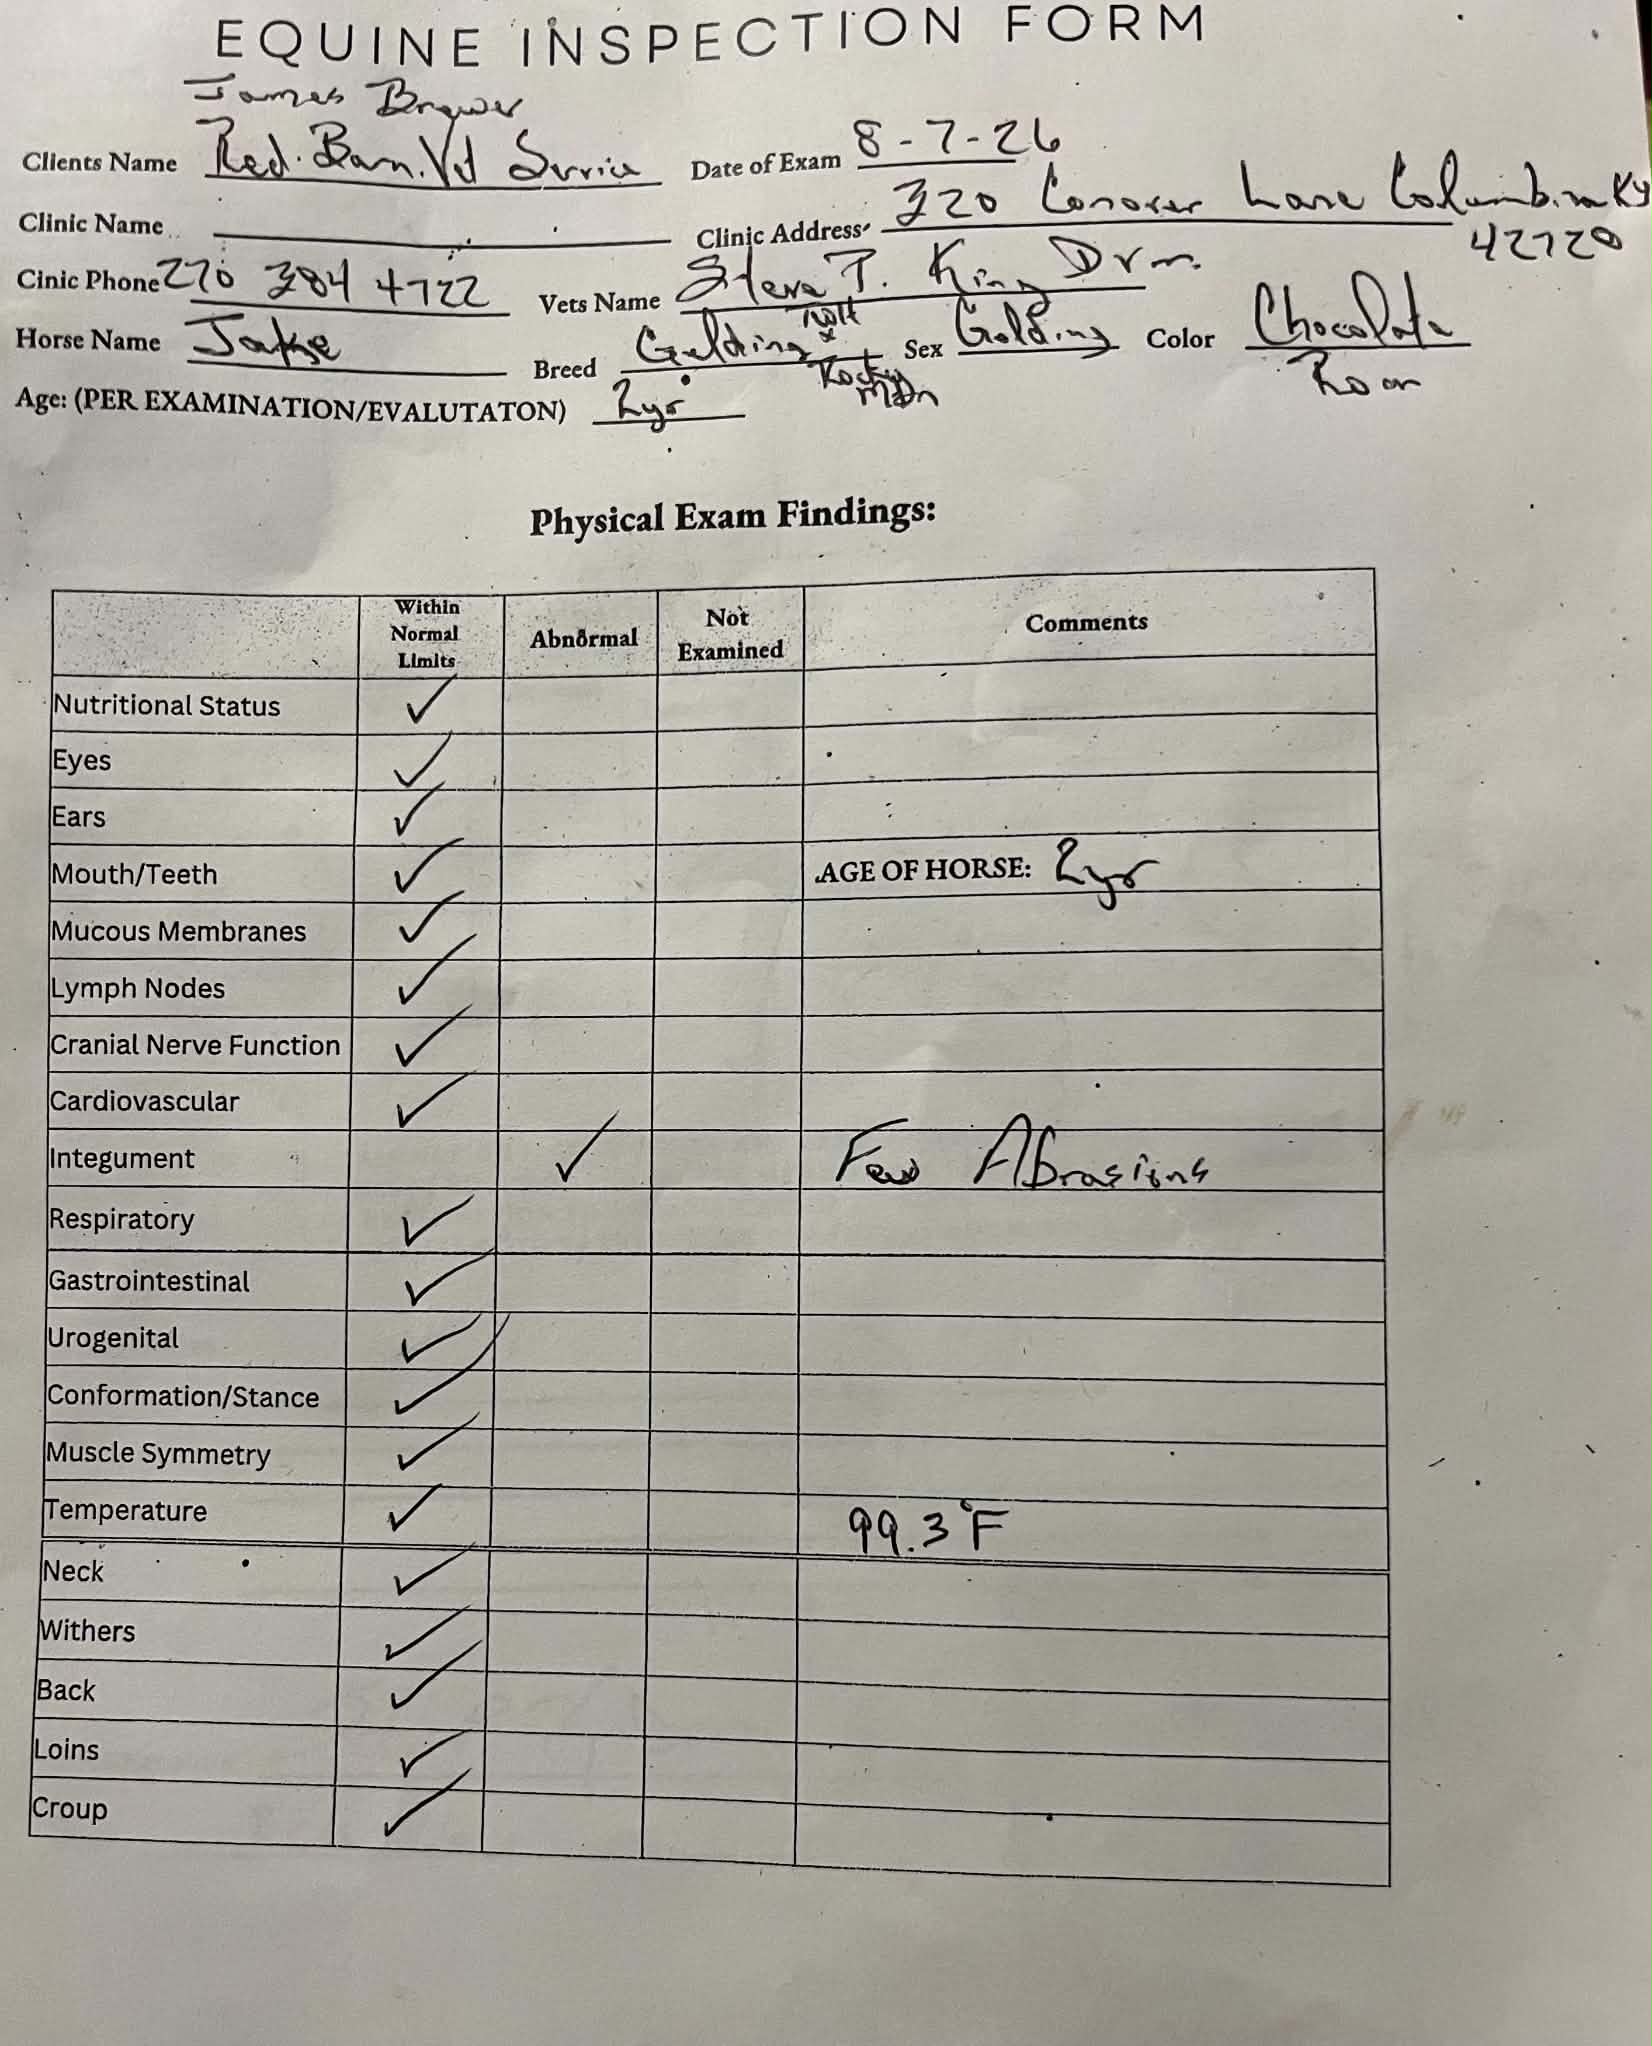 EQUINE INSPECTION FORM
James Brewer
Clients Name Red Barn Vet Service Date of Exam 8-7-26
Clinic Name Clinic Address 320 Conover Lane Columbia KY
42728
Cinic Phone 270 384 4722 Vets Name Steve T. King Dvm.
Horse Name Jake Breed Gelding TWH x Rocky Mtn Sex Gelding Color Chocolate Roan
Age: (PER EXAMINATION/EVALUTATON) 2yr
Physical Exam Findings:
Within Normal Limits Abnormal Not Examined Comments
Nutritional Status ✓
Eyes ✓
Ears ✓
Mouth/Teeth ✓ AGE OF HORSE: 2yr
Mucous Membranes ✓
Lymph Nodes ✓
Cranial Nerve Function ✓
Cardiovascular ✓
Integument ✓ Few Abrasions
Respiratory ✓
Gastrointestinal ✓
Urogenital ✓
Conformation/Stance ✓
Muscle Symmetry ✓
Temperature ✓ 99.3°F
Neck ✓
Withers ✓
Back ✓
Loins ✓
Croup ✓